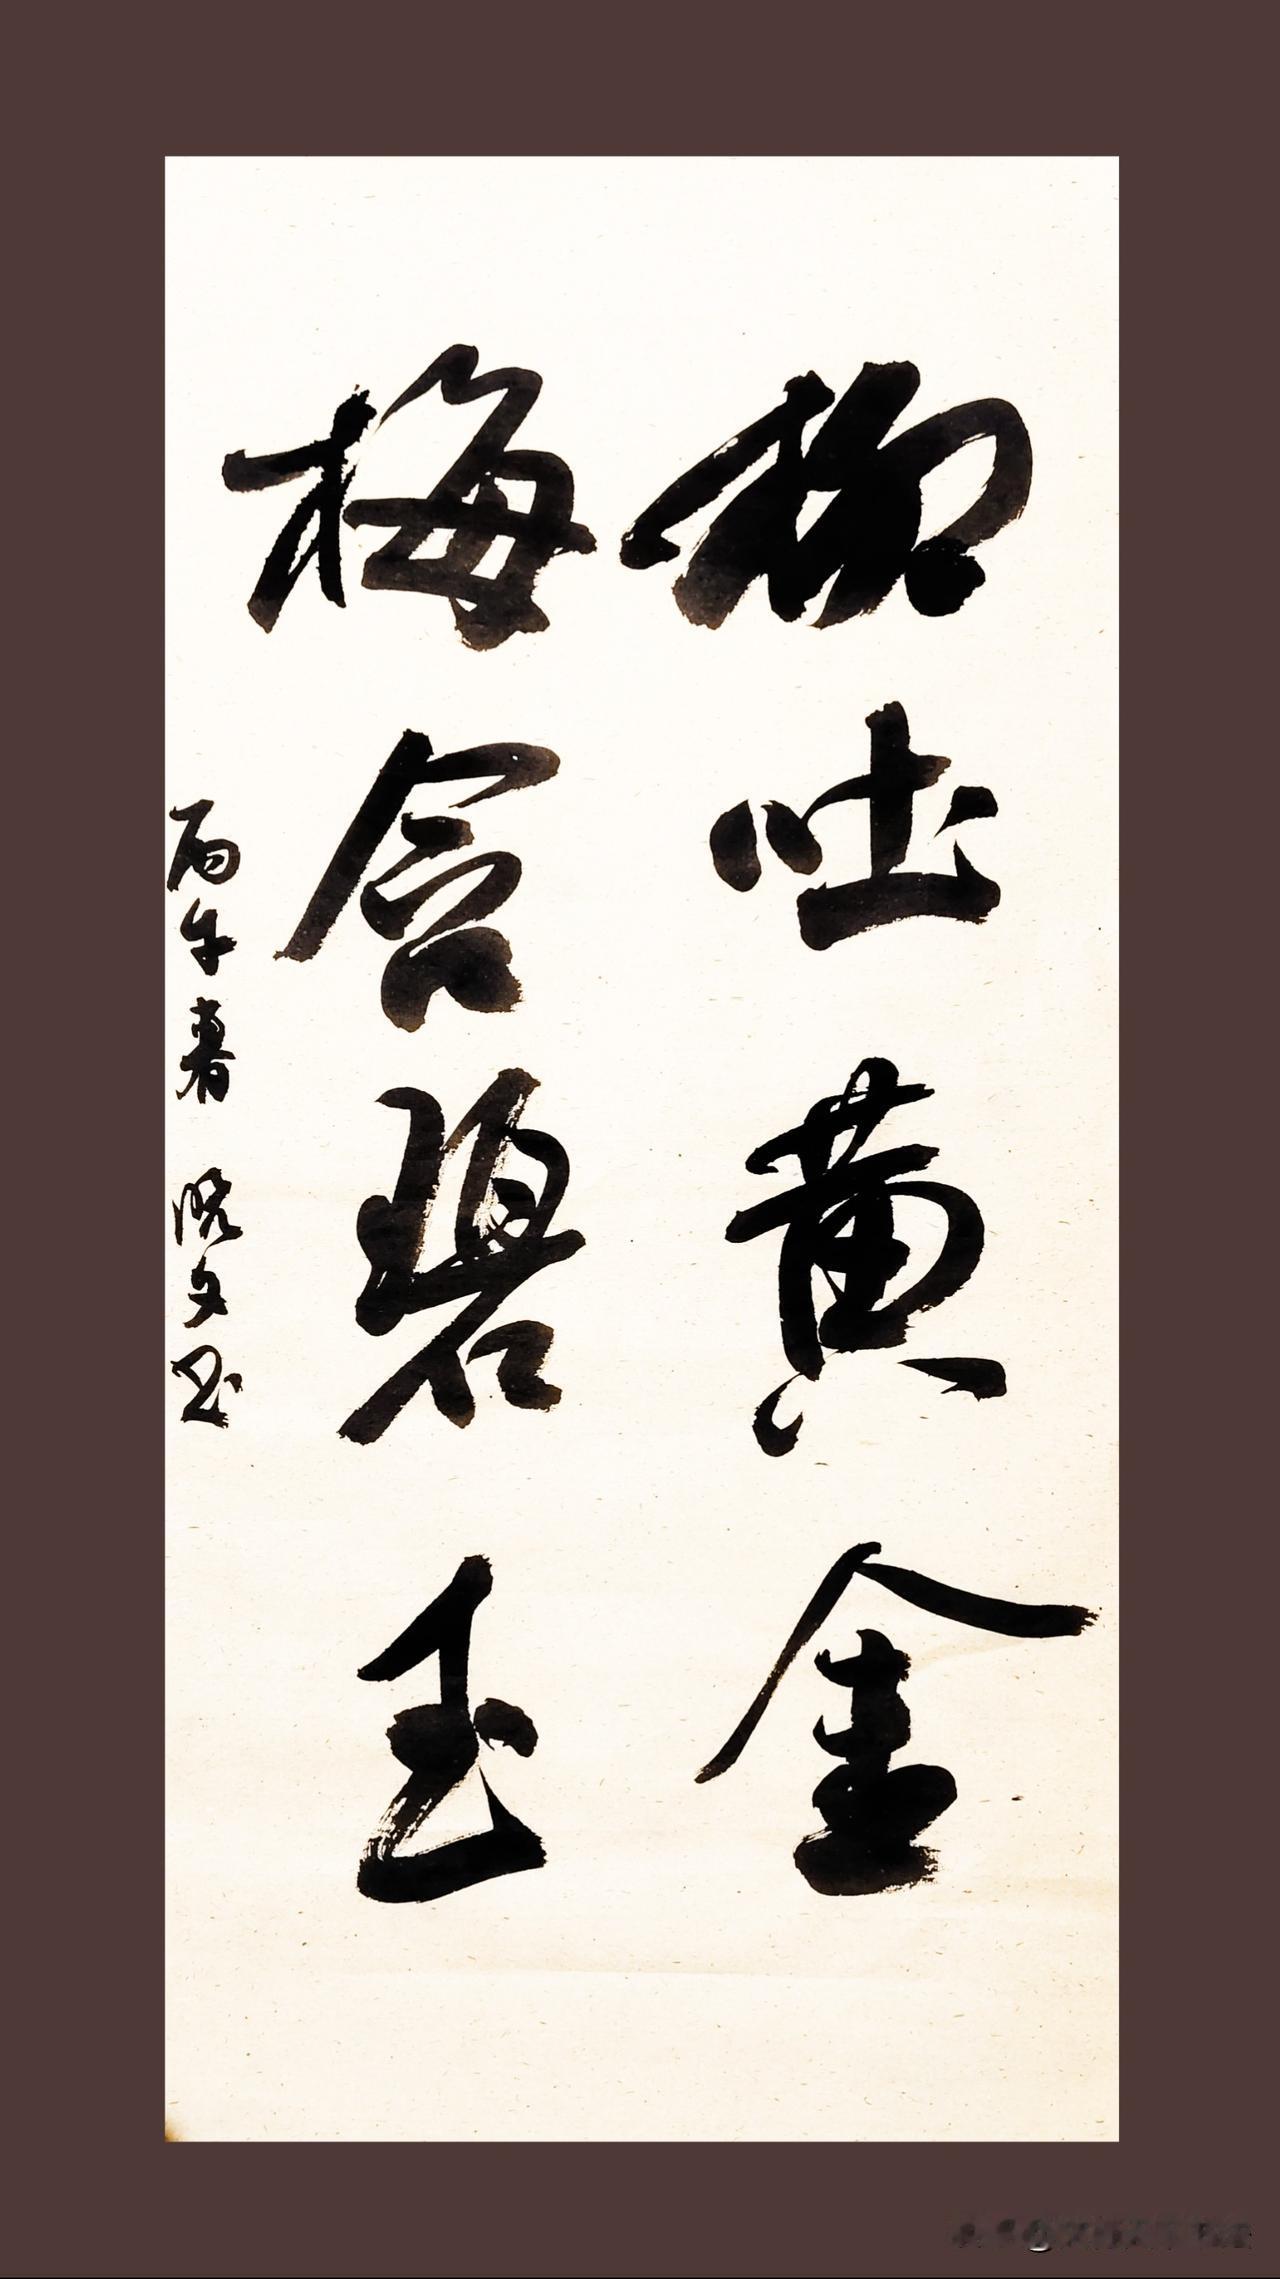 柳吐黄金
梅含碧玉
丙午春 晓文书